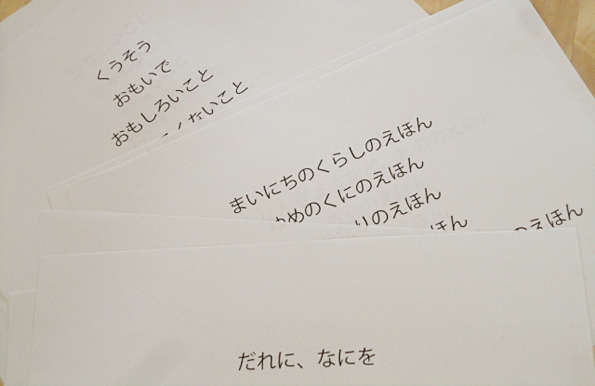 くうそう
おもいで
おもしろいこと
まいにちのくらしのえほん
のくにのえほん
りのえほん
えほん
だれに、なにを